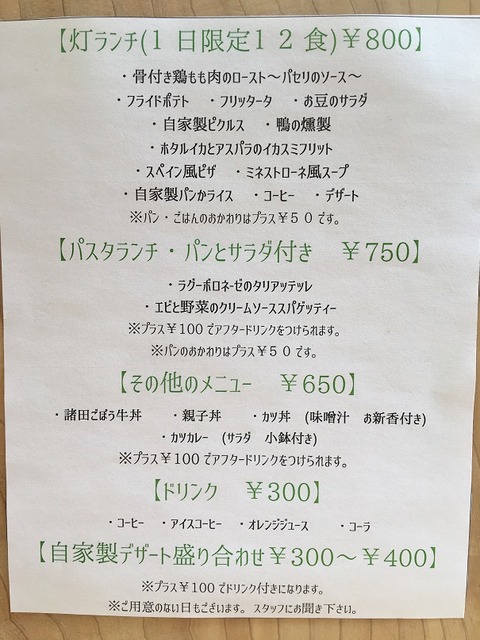 【灯ランチ(1日限定12食)￥800】
・骨付き鶏もも肉のロースト～パセリのソース～
・フライドポテト ・フリッタータ ・お豆のサラダ
・自家製ピクルス ・鴨の燻製
・ホタルイカとアスパラのイカスミフリット
・スペイン風ピザ ・ミネストローネ風スープ
・自家製パンかライス ・コーヒー ・デザート
※パン・ごはんのおかわりはプラス￥50です。
【パスタランチ・パンとサラダ付き ￥750】
・ラグーボロネーゼのタリアッテッレ
・エビと野菜のクリームソーススパゲッティー
※プラス￥100でアフタードリンクをつけられます。
※パンのおかわりはプラス￥50です。
【その他のメニュー ￥650】
・諸田ごぼう牛丼 ・親子丼 ・カツ丼 (味噌汁 お新香付き)
・カツカレー (サラダ 小鉢付き)
※プラス￥100でアフタードリンクをつけられます。
【ドリンク ￥300】
・コーヒー ・アイスコーヒー ・オレンジジュース ・コーラ
【自家製デザート盛り合わせ￥300～￥400】
※プラス￥100でドリンク付きになります。
※ご用意のない日もございます。スタッフにお聞き下さい。